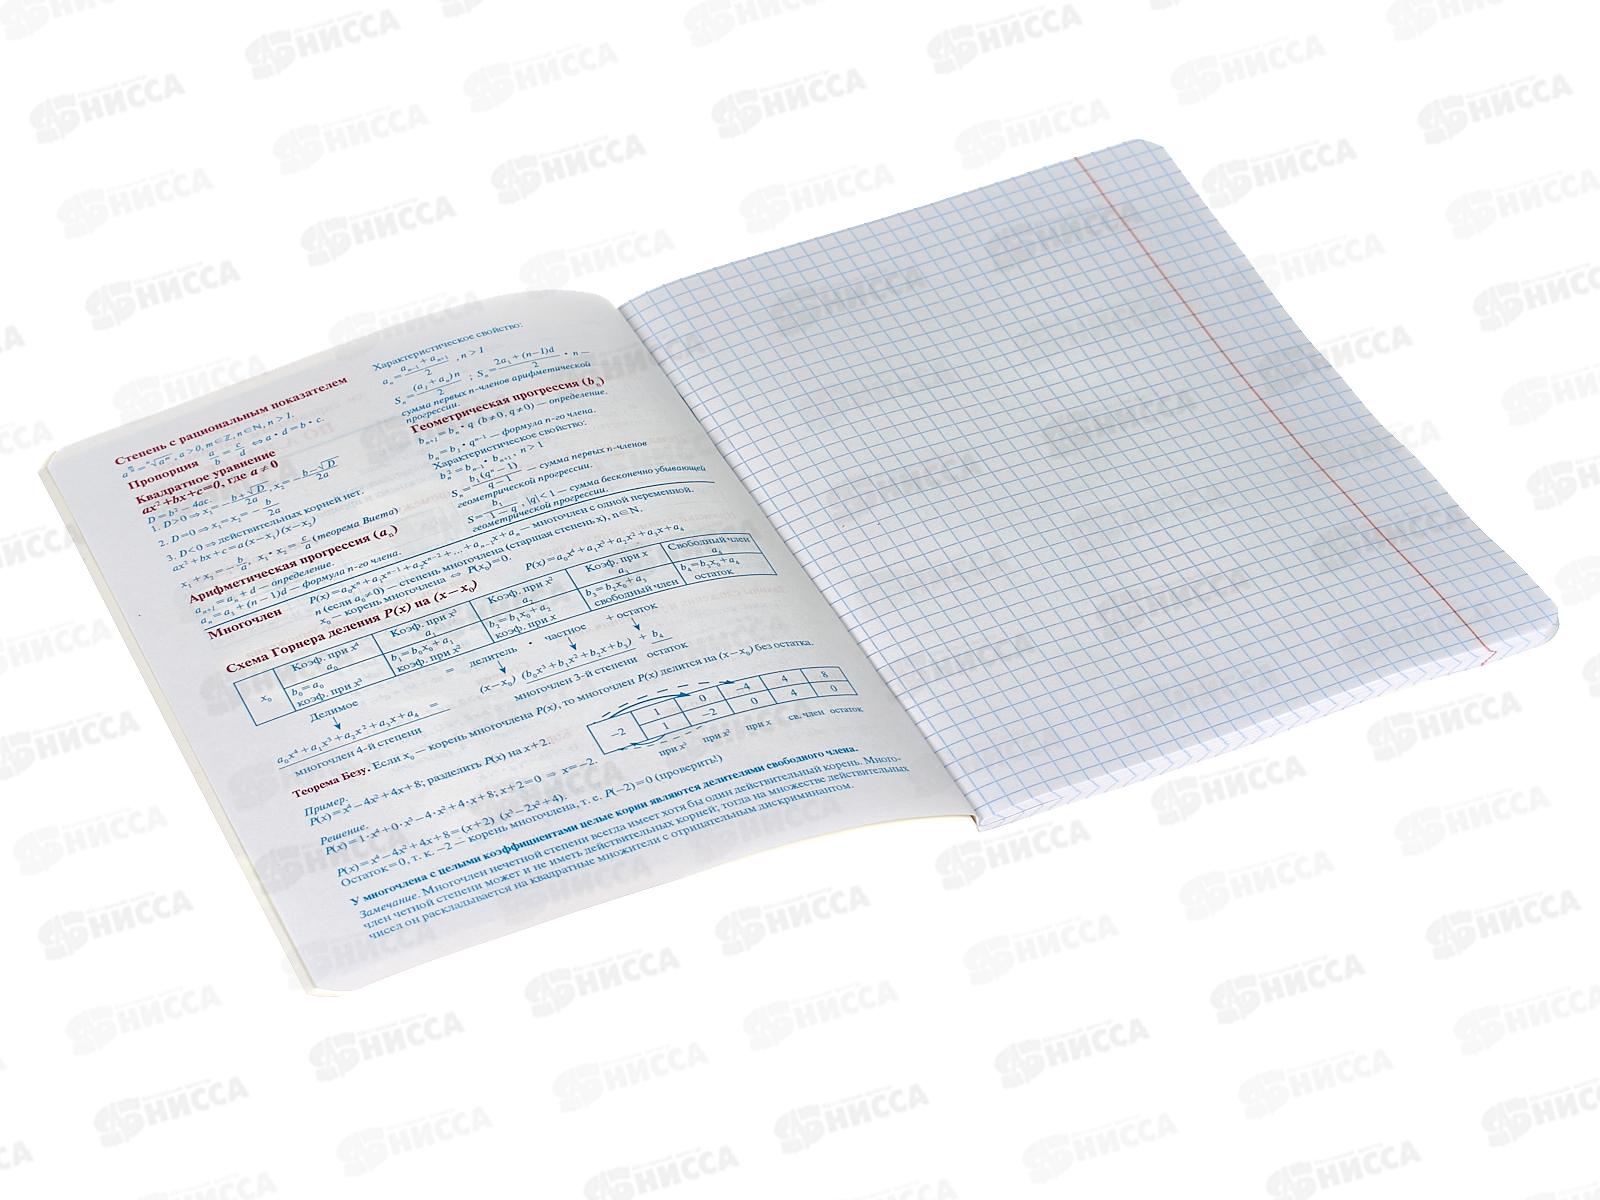 Степень с рациональным показателем
a^(m/n) = ⁿ√a^m, a > 0, m ∈ Z, n ∈ N, n > 1.
Пропорция a/b = c/d ⇔ a · d = b · c.
Квадратное уравнение
ax² + bx + c = 0, где a ≠ 0
D = b² – 4ac.
1. D > 0 ⇒ x₁ = (–b + √D)/2a, x₂ = (–b – √D)/2a
2. D = 0 ⇒ x₁ = x₂ = –b/2a
3. D < 0 ⇒ действительных корней нет.
ax² + bx + c = a(x – x₁)(x – x₂)
x₁ + x₂ = –b/a, x₁ · x₂ = c/a (теорема Виета)
Арифметическая прогрессия (aₙ)
aₙ₊₁ = aₙ + d — определение.
aₙ = a₁ + (n – 1)d — формула n-го члена.
Характеристическое свойство:
aₙ = (aₙ₋₁ + aₙ₊₁)/2, n > 1
Sₙ = (a₁ + aₙ)n/2; Sₙ = (2a₁ + (n–1)d)/2 · n —
сумма первых n-членов арифметической
прогрессии.
Геометрическая прогрессия (bₙ)
bₙ₊₁ = bₙ · q (b ≠ 0, q ≠ 0) — определение.
bₙ = b₁ · qⁿ⁻¹ — формула n-го члена.
Характеристическое свойство:
bₙ² = bₙ₋₁ · bₙ₊₁, n > 1
Sₙ = b₁(qⁿ – 1)/(q – 1) — сумма первых n-членов
геометрической прогрессии.
S = b₁/(1 – q), |q| < 1 — сумма бесконечно убывающей
геометрической прогрессии.
Многочлен P(x) = a₀xⁿ + a₁xⁿ⁻¹ + a₂xⁿ⁻² + ... + aₙ₋₁x + aₙ — многочлен с одной переменной.
n (если a₀ ≠ 0) — степень многочлена (старшая степень x), n ∈ N.
x₀ — корень многочлена ⇔ P(x₀) = 0.
Схема Горнера деления P(x) на (x – x₀) P(x) = a₀x⁴ + a₁x³ + a₂x² + a₃x + a₄
Коэф. при x⁴ Коэф. при x³ Коэф. при x² Коэф. при x Свободный член
a₀ a₁ a₂ a₃ a₄
x₀ b₀ = a₀ b₁ = b₀x₀ + a₁ b₂ = b₁x₀ + a₂ b₃ = b₂x₀ + a₃ b₄ = b₃x₀ + a₄
коэф. при x³ коэф. при x² коэф. при x свободный член остаток
Делимое = делитель · частное + остаток
a₀x⁴ + a₁x³ + a₂x² + a₃x + a₄ = (x – x₀) (b₀x³ + b₁x² + b₂x + b₃) + b₄
многочлен 4-й степени многочлен 3-й степени остаток
Теорема Безу. Если x₀ — корень многочлена P(x), то многочлен P(x) делится на (x – x₀) без остатка.
Пример.
P(x) = x⁴ – 4x² + 4x + 8; разделить P(x) на x + 2.
1 0 –4 4 8
–2 1 –2 0 4 0
при x³ при x² при x св. член остаток
Решение.
P(x) = 1 · x⁴ + 0 · x³ – 4 · x² + 4 · x + 8; x + 2 = 0 ⇒ x = –2.
P(x) = x⁴ – 4x² + 4x + 8 = (x + 2) (x³ – 2x² + 4).
Остаток = 0, т. к. –2 — корень многочлена, т. е. P(–2) = 0 (проверить!)
У многочлена с целыми коэффициентами целые корни являются делителями свободного члена.
Замечание. Многочлен нечетной степени всегда имеет хотя бы один действительный корень. Много-
член четной степени может и не иметь действительных корней; тогда на множестве действительных
чисел он раскладывается на квадратные множители с отрицательным дискриминантом.
НИССА